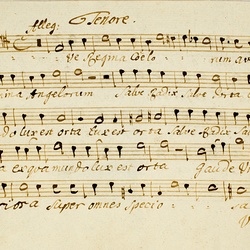 Alleg: Tenore.
ve Regina Coelo rum a
ina Angelorum Salve Radix Salve Porta
lux est orta lux est orta Salve Radix Sal
ex qua mundo lux est orta Gaude
riosa super omnes specio sa